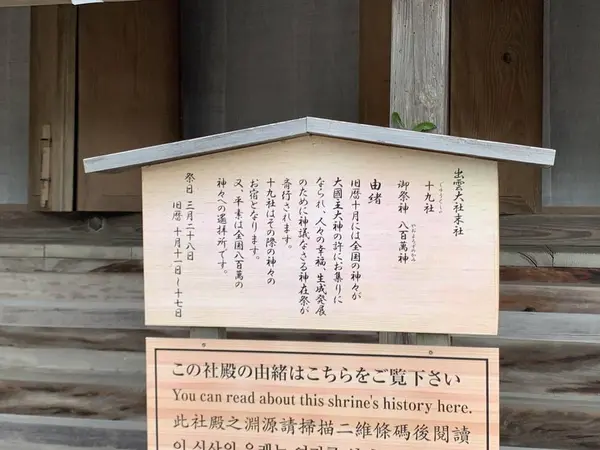 出雲大社末社
十九社
じゅうくしゃ
御祭神 八百萬神
やおよろずのかみ
由緒
旧暦十月には全国の神々が
大國主大神の許にお集りに
なられ、人々の幸福、生成発展
のために神議なさる神在祭が
斎行されます。
十九社はその際の神々の
お宿となります。
又、平素は全国八百萬の
神々への遥拝所です。
祭日 三月二十八日
旧暦 十月十一日～十七日
この社殿の由緒はこちらをご覧下さい
You can read about this shrine's history here.
此社殿之淵源請掃描二維條碼後閱讀
이 신사의 유래는 여기를